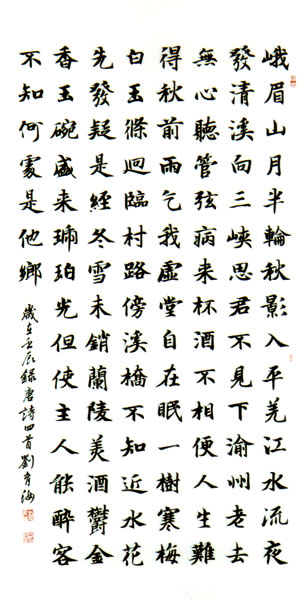 峨眉山月半輪秋影入平羌江水流夜
發清溪向三峽思君不見下渝州老去
無心聽管弦病来杯酒不相便人生難
得秋前雨乞我虛堂自在眠一樹寒梅
白玉條迥臨村路傍溪橋不知近水花
先發疑是經冬雪未銷蘭陵美酒欝金
香玉碗盛来琥珀光但使主人能醉客
不知何處是他鄉
歲在壬辰錄唐詩四首劉育海